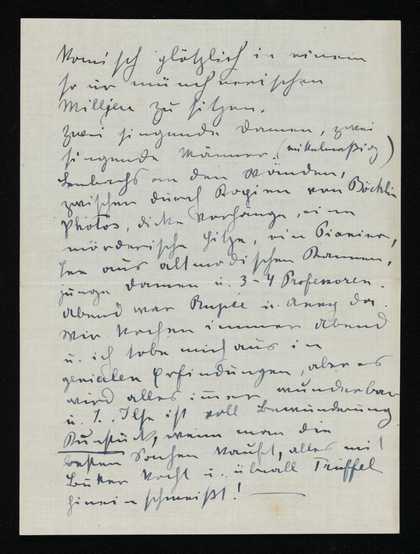 Komisch plötzlich in einem
so ur münchnerischen
Milljen zu sitzen.
Zwei singende Damen, zwei
singende Männer, (mittelmäßig)
Lenbachs an den Wänden,
zwischen durch Kopien von Böcklin
Photos, dicke Vorhänge, eine
mörderische Hitze, ein Pianino,
Tee aus altmodischen Kannen,
junge Damen u. 3-4 Professoren.
Abend war Rupé u. Anny da.
Wir kochen immer abend
u. ich tobe mich aus in
genialen Erfindungen, aber es
wird alles immer wunderbar
u. Ilse ist voll Bewunderung
Kunstück, wenn man die
besten Sachen kauft, alles mit
Butter kocht u. überall Trüffel
hinein schmeißt!